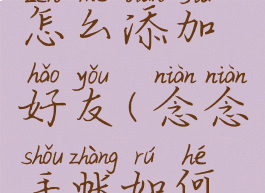 怎么添加
hǎo yǒu niàn niàn
好友(念念
shǒu zhàng rú hé
手帐如何